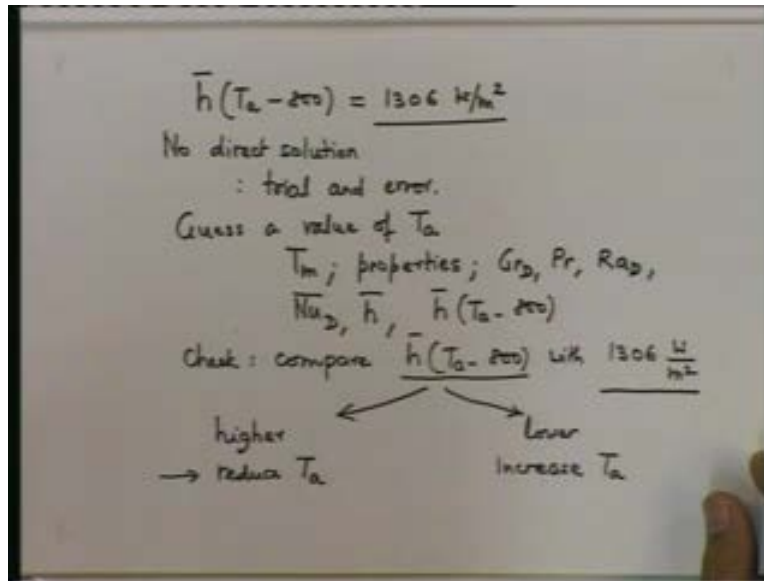 h̄(Ta - 800) = 1306 W/m²
No direct solution
: trial and error.
Guess a value of Ta
Tm; properties; GrD, Pr, RaD,
N̄uD, h̄, h̄(Ta - 800)
Check: compare h̄(Ta - 800) with 1306 W/m²
higher Lower
→ reduce Ta increase Ta